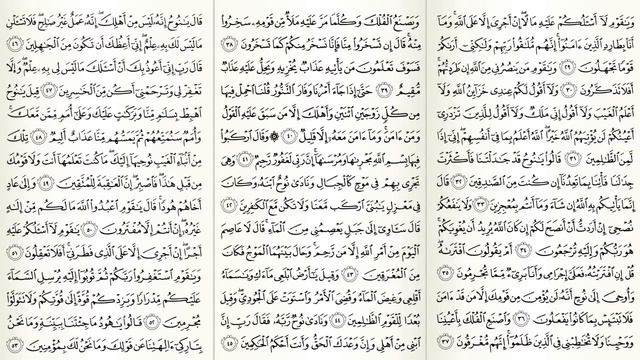 وَيَٰقَوْمِ لَآ أَسْـَٔلُكُمْ عَلَيْهِ مَالًا ۖ إِنْ أَجْرِىَ إِلَّا عَلَى ٱللَّهِ ۚ وَمَآ
أَنَا۠ بِطَارِدِ ٱلَّذِينَ ءَامَنُوٓا۟ ۚ إِنَّهُم مُّلَٰقُوا۟ رَبِّهِمْ وَلَٰكِنِّىٓ أَرَىٰكُمْ
قَوْمًا تَجْهَلُونَ ٢٩ وَيَٰقَوْمِ مَن يَنصُرُنِى مِنَ ٱللَّهِ إِن طَرَدتُّهُمْ ۚ
أَفَلَا تَذَكَّرُونَ ٣٠ وَلَآ أَقُولُ لَكُمْ عِندِى خَزَآئِنُ ٱللَّهِ وَلَآ
أَعْلَمُ ٱلْغَيْبَ وَلَآ أَقُولُ إِنِّى مَلَكٌ وَلَآ أَقُولُ لِلَّذِينَ تَزْدَرِىٓ
أَعْيُنُكُمْ لَن يُؤْتِيَهُمُ ٱللَّهُ خَيْرًا ۖ ٱللَّهُ أَعْلَمُ بِمَا فِىٓ أَنفُسِهِمْ ۖ إِنِّىٓ إِذًا
لَّمِنَ ٱلظَّٰلِمِينَ ٣١ قَالُوا۟ يَٰنُوحُ قَدْ جَٰدَلْتَنَا فَأَكْثَرْتَ
جِدَٰلَنَا فَأْتِنَا بِمَا تَعِدُنَآ إِن كُنتَ مِنَ ٱلصَّٰدِقِينَ ٣٢ قَالَ
إِنَّمَا يَأْتِيكُم بِهِ ٱللَّهُ إِن شَآءَ وَمَآ أَنتُم بِمُعْجِزِينَ ٣٣ وَلَا يَنفَعُكُمْ
نُصْحِىٓ إِنْ أَرَدتُّ أَنْ أَنصَحَ لَكُمْ إِن كَانَ ٱللَّهُ يُرِيدُ أَن يُغْوِيَكُمْ ۚ
هُوَ رَبُّكُمْ وَإِلَيْهِ تُرْجَعُونَ ٣٤ أَمْ يَقُولُونَ ٱفْتَرَىٰهُ ۖ
قُلْ إِنِ ٱفْتَرَيْتُهُۥ فَعَلَىَّ إِجْرَامِى وَأَنَا۠ بَرِىٓءٌ مِّمَّا تُجْرِمُونَ ٣٥
وَأُوحِىَ إِلَىٰ نُوحٍ أَنَّهُۥ لَن يُؤْمِنَ مِن قَوْمِكَ إِلَّا مَن قَدْ ءَامَنَ
فَلَا تَبْتَئِسْ بِمَا كَانُوا۟ يَفْعَلُونَ ٣٦ وَٱصْنَعِ ٱلْفُلْكَ بِأَعْيُنِنَا
وَوَحْيِنَا وَلَا تُخَٰطِبْنِى فِى ٱلَّذِينَ ظَلَمُوٓا۟ ۚ إِنَّهُم مُّغْرَقُونَ ٣٧
وَيَصْنَعُ ٱلْفُلْكَ وَكُلَّمَا مَرَّ عَلَيْهِ مَلَأٌ مِّن قَوْمِهِۦ سَخِرُوا۟
مِنْهُ ۚ قَالَ إِن تَسْخَرُوا۟ مِنَّا فَإِنَّا نَسْخَرُ مِنكُمْ كَمَا تَسْخَرُونَ ٣٨
فَسَوْفَ تَعْلَمُونَ مَن يَأْتِيهِ عَذَابٌ يُخْزِيهِ وَيَحِلُّ عَلَيْهِ عَذَابٌ
مُّقِيمٌ ٣٩ حَتَّىٰٓ إِذَا جَآءَ أَمْرُنَا وَفَارَ ٱلتَّنُّورُ قُلْنَا ٱحْمِلْ فِيهَا
مِن كُلٍّ زَوْجَيْنِ ٱثْنَيْنِ وَأَهْلَكَ إِلَّا مَن سَبَقَ عَلَيْهِ ٱلْقَوْلُ
وَمَنْ ءَامَنَ ۚ وَمَآ ءَامَنَ مَعَهُۥٓ إِلَّا قَلِيلٌ ٤٠ ۞ وَقَالَ ٱرْكَبُوا۟
فِيهَا بِسْمِ ٱللَّهِ مَجْر۪ىٰهَا وَمُرْسَىٰهَآ ۚ إِنَّ رَبِّى لَغَفُورٌ رَّحِيمٌ ٤١ وَهِىَ
تَجْرِى بِهِمْ فِى مَوْجٍ كَٱلْجِبَالِ وَنَادَىٰ نُوحٌ ٱبْنَهُۥ وَكَانَ
فِى مَعْزِلٍ يَٰبُنَىَّ ٱرْكَب مَّعَنَا وَلَا تَكُن مَّعَ ٱلْكَٰفِرِينَ ٤٢
قَالَ سَـَٔاوِىٓ إِلَىٰ جَبَلٍ يَعْصِمُنِى مِنَ ٱلْمَآءِ ۚ قَالَ لَا عَاصِمَ
ٱلْيَوْمَ مِنْ أَمْرِ ٱللَّهِ إِلَّا مَن رَّحِمَ ۚ وَحَالَ بَيْنَهُمَا ٱلْمَوْجُ فَكَانَ
مِنَ ٱلْمُغْرَقِينَ ٤٣ وَقِيلَ يَٰٓأَرْضُ ٱبْلَعِى مَآءَكِ وَيَٰسَمَآءُ
أَقْلِعِى وَغِيضَ ٱلْمَآءُ وَقُضِىَ ٱلْأَمْرُ وَٱسْتَوَتْ عَلَى ٱلْجُودِىِّ ۖ وَقِيلَ
بُعْدًا لِّلْقَوْمِ ٱلظَّٰلِمِينَ ٤٤ وَنَادَىٰ نُوحٌ رَّبَّهُۥ فَقَالَ رَبِّ إِنَّ
ٱبْنِى مِنْ أَهْلِى وَإِنَّ وَعْدَكَ ٱلْحَقُّ وَأَنتَ أَحْكَمُ ٱلْحَٰكِمِينَ ٤٥
قَالَ يَٰنُوحُ إِنَّهُۥ لَيْسَ مِنْ أَهْلِكَ ۖ إِنَّهُۥ عَمَلٌ غَيْرُ صَٰلِحٍ ۖ فَلَا تَسْـَٔلْنِ
مَا لَيْسَ لَكَ بِهِۦ عِلْمٌ ۖ إِنِّىٓ أَعِظُكَ أَن تَكُونَ مِنَ ٱلْجَٰهِلِينَ ٤٦
قَالَ رَبِّ إِنِّىٓ أَعُوذُ بِكَ أَنْ أَسْـَٔلَكَ مَا لَيْسَ لِى بِهِۦ عِلْمٌ ۖ وَإِلَّا
تَغْفِرْ لِى وَتَرْحَمْنِىٓ أَكُن مِّنَ ٱلْخَٰسِرِينَ ٤٧ قِيلَ يَٰنُوحُ
ٱهْبِطْ بِسَلَٰمٍ مِّنَّا وَبَرَكَٰتٍ عَلَيْكَ وَعَلَىٰٓ أُمَمٍ مِّمَّن مَّعَكَ ۚ
وَأُمَمٌ سَنُمَتِّعُهُمْ ثُمَّ يَمَسُّهُم مِّنَّا عَذَابٌ أَلِيمٌ ٤٨ تِلْكَ
مِنْ أَنۢبَآءِ ٱلْغَيْبِ نُوحِيهَآ إِلَيْكَ ۖ مَا كُنتَ تَعْلَمُهَآ أَنتَ وَلَا قَوْمُكَ
مِن قَبْلِ هَٰذَا ۖ فَٱصْبِرْ ۖ إِنَّ ٱلْعَٰقِبَةَ لِلْمُتَّقِينَ ٤٩ وَإِلَىٰ عَادٍ
أَخَاهُمْ هُودًا ۚ قَالَ يَٰقَوْمِ ٱعْبُدُوا۟ ٱللَّهَ مَا لَكُم مِّنْ إِلَٰهٍ
غَيْرُهُۥٓ ۖ إِنْ أَنتُمْ إِلَّا مُفْتَرُونَ ٥٠ يَٰقَوْمِ لَآ أَسْـَٔلُكُمْ عَلَيْهِ
أَجْرًا ۖ إِنْ أَجْرِىَ إِلَّا عَلَى ٱلَّذِى فَطَرَنِىٓ ۚ أَفَلَا تَعْقِلُونَ ٥١
وَيَٰقَوْمِ ٱسْتَغْفِرُوا۟ رَبَّكُمْ ثُمَّ تُوبُوٓا۟ إِلَيْهِ يُرْسِلِ ٱلسَّمَآءَ
عَلَيْكُم مِّدْرَارًا وَيَزِدْكُمْ قُوَّةً إِلَىٰ قُوَّتِكُمْ وَلَا تَتَوَلَّوْا۟
مُجْرِمِينَ ٥٢ قَالُوا۟ يَٰهُودُ مَا جِئْتَنَا بِبَيِّنَةٍ وَمَا نَحْنُ
بِتَارِكِىٓ ءَالِهَتِنَا عَن قَوْلِكَ وَمَا نَحْنُ لَكَ بِمُؤْمِنِينَ ٥٣